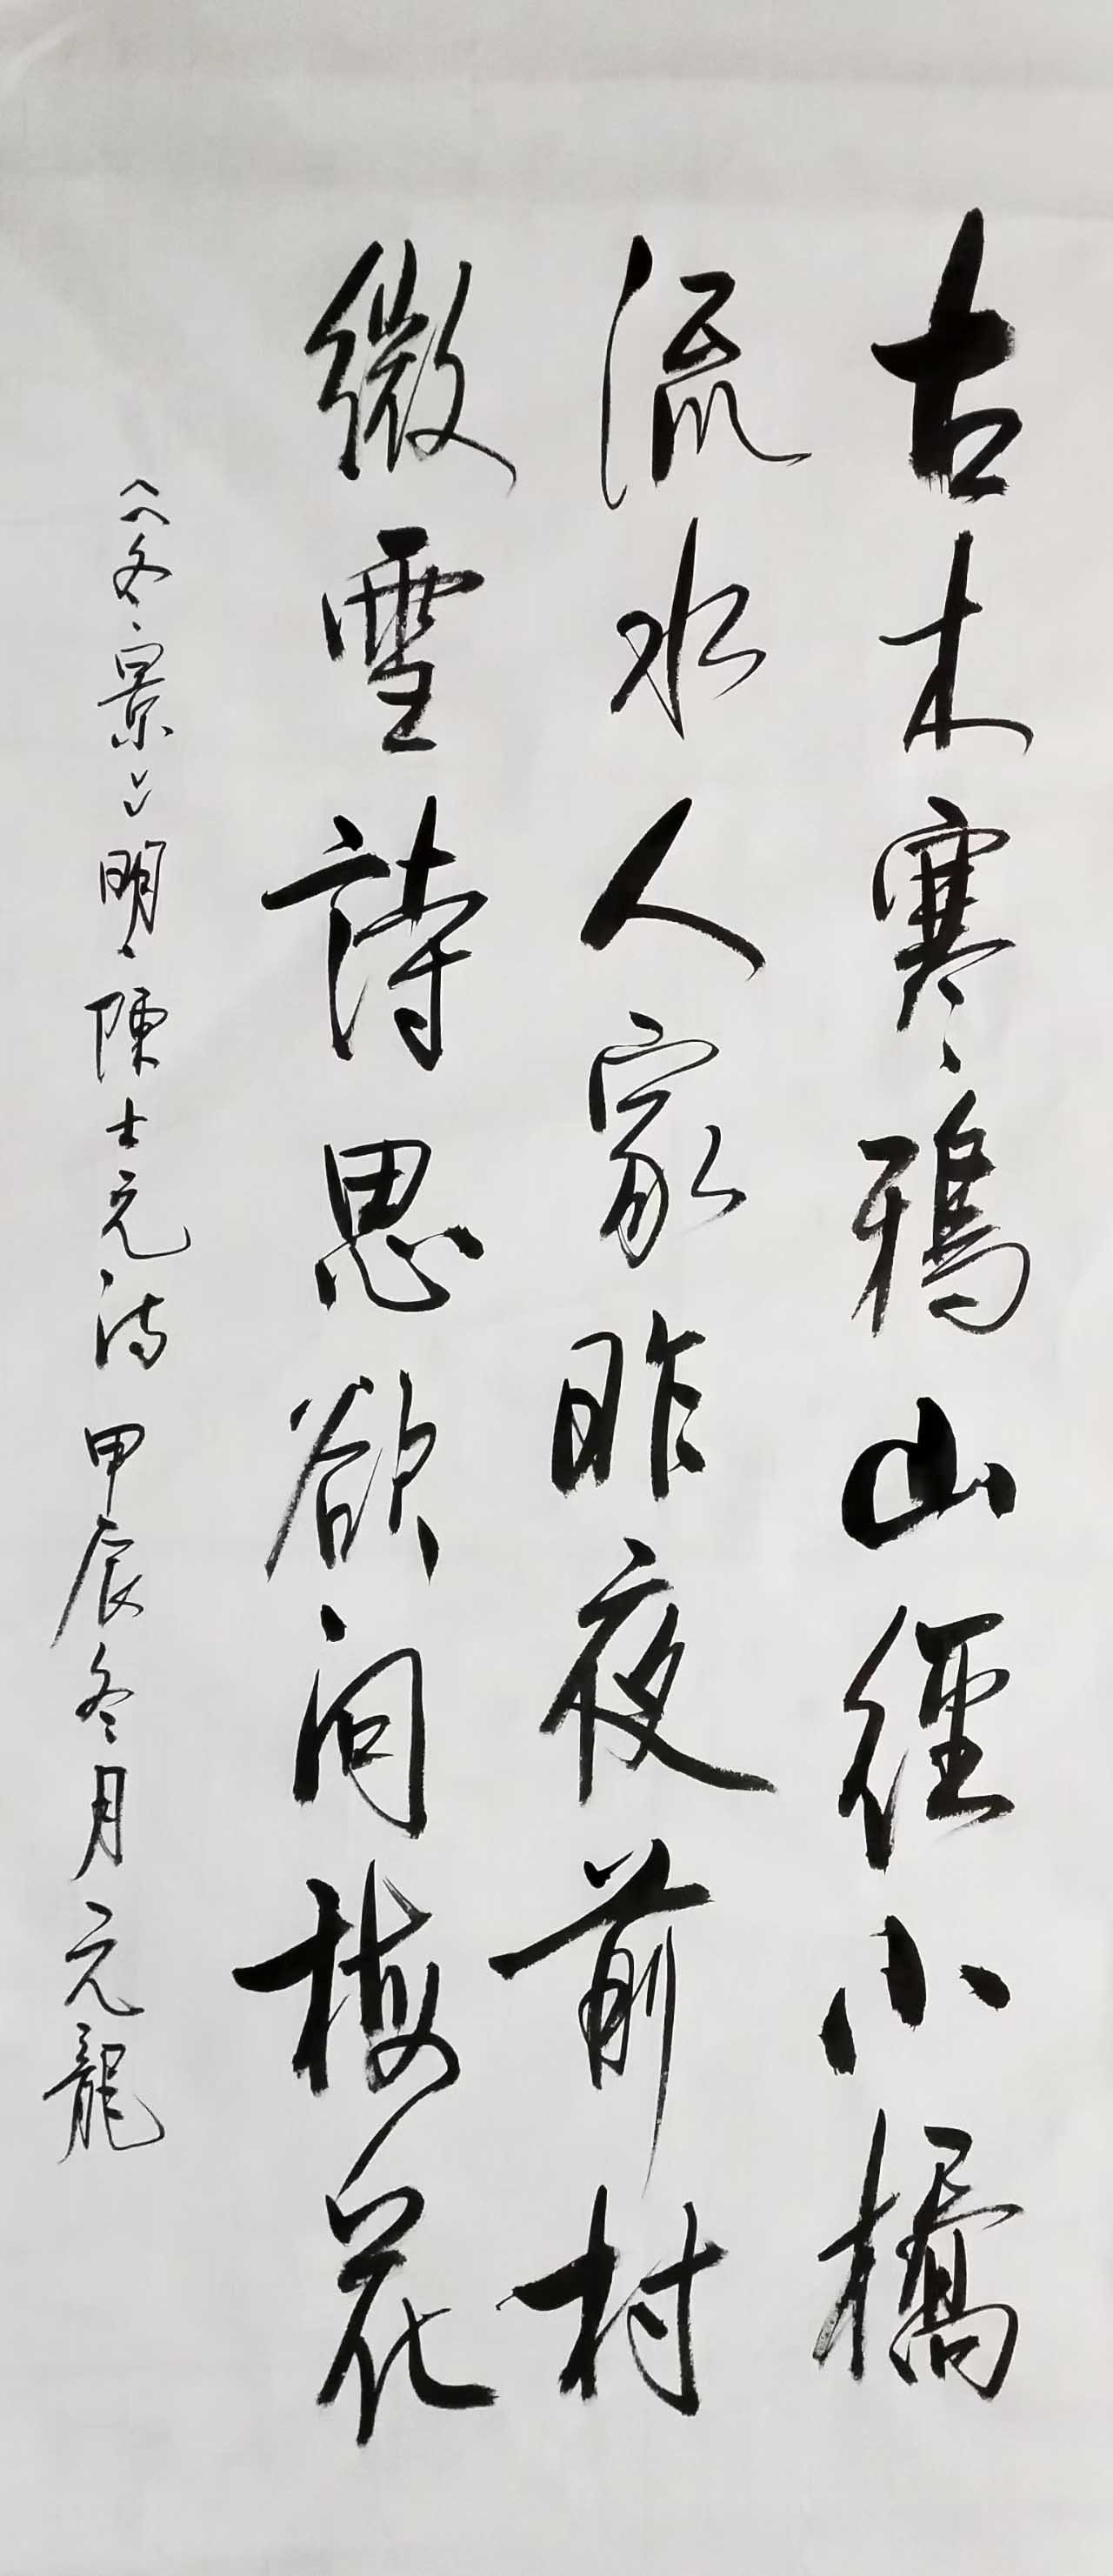 古木寒鴉山徑小橋
流水人家昨夜前村
微雪詩思欲问梅花
《冬景》明陳士元诗 甲辰冬月元龍